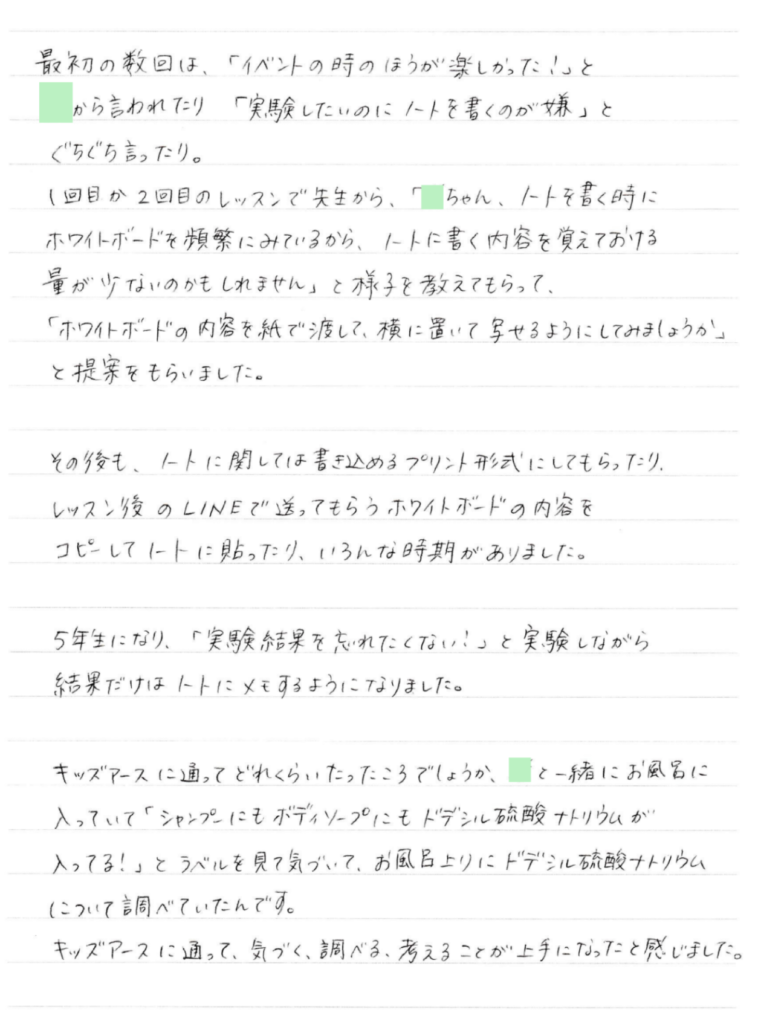 最初の数回は、「イベントの時のほうが楽しかった!」と
から言われたり 「実験したいのに ノートを書くのが嫌」と
ぐちぐち言ったり。
1回目か2回目のレッスンで先生から、「ちゃん、ノートを書く時に
ホワイトボードを頻繁にみているから、ノートに書く内容を覚えておける
量が少ないのかもしれません」と様子を教えてもらって、
「ホワイトボードの内容を紙で渡して、横に置いて写せるようにしてみましょうか」
と提案をもらいました。
その後も、ノートに関しては書き込めるプリント形式にしてもらったり、
レッスン後のLINEで送ってもらうホワイトボードの内容を
コピーしてノートに貼ったり、いろんな時期がありました。
5年生になり、「実験結果を忘れたくない!」と実験しながら
結果だけはノートにメモするようになりました。
キッズアースに通ってどれくらいたったころでしょうか、と一緒にお風呂に
入っていて「シャンプーにもボディソープにもドデシル硫酸ナトリウムが
入ってる!」とラベルを見て気づいて、お風呂上りにドデシル硫酸ナトリウム
について調べていたんです。
キッズアースに通って、気づく、調べる、考えることが上手になったと感じました。